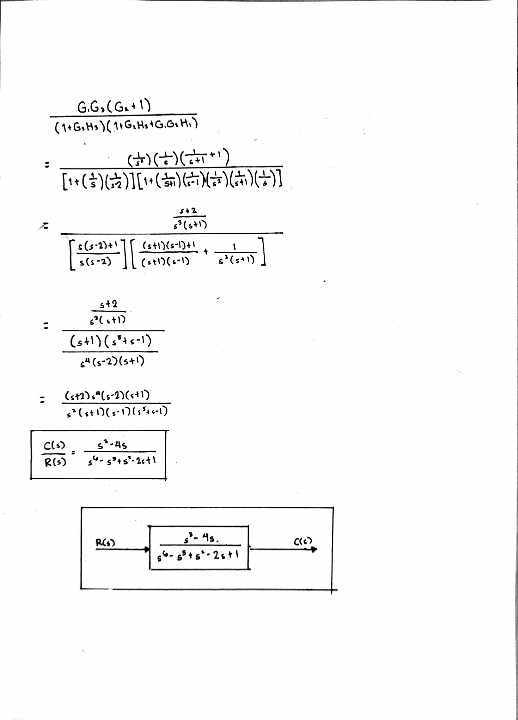 G₁G₃(G₂+1)
(1+G₃H₃)(1+G₂H₂+G₁G₂H₁)
= (1/s²)(1/s)(1/s+1 +1)
[1+(1/s)(1/s-2)][1+(1/s+1)(1/s-1)+(1/s²)(1/s+1)(1/s)]
= s+2
s³(s+1)
[s(s-2)+1 / s(s-2)][(s+1)(s-1)+1 / (s+1)(s-1) + 1 / s³(s+1)]
= s+2
s³(s+1)
(s+1)(s³+s-1)
s⁴(s-2)(s+1)
= (s+2)s⁴(s-2)(s+1)
s³(s+1)(s-1)(s³+s-1)
C(s)/R(s) = s³-4s / s⁶-s⁵+s²-2s+1
R(s) s³-4s. C(s)
s⁶-s⁵+s²-2s+1